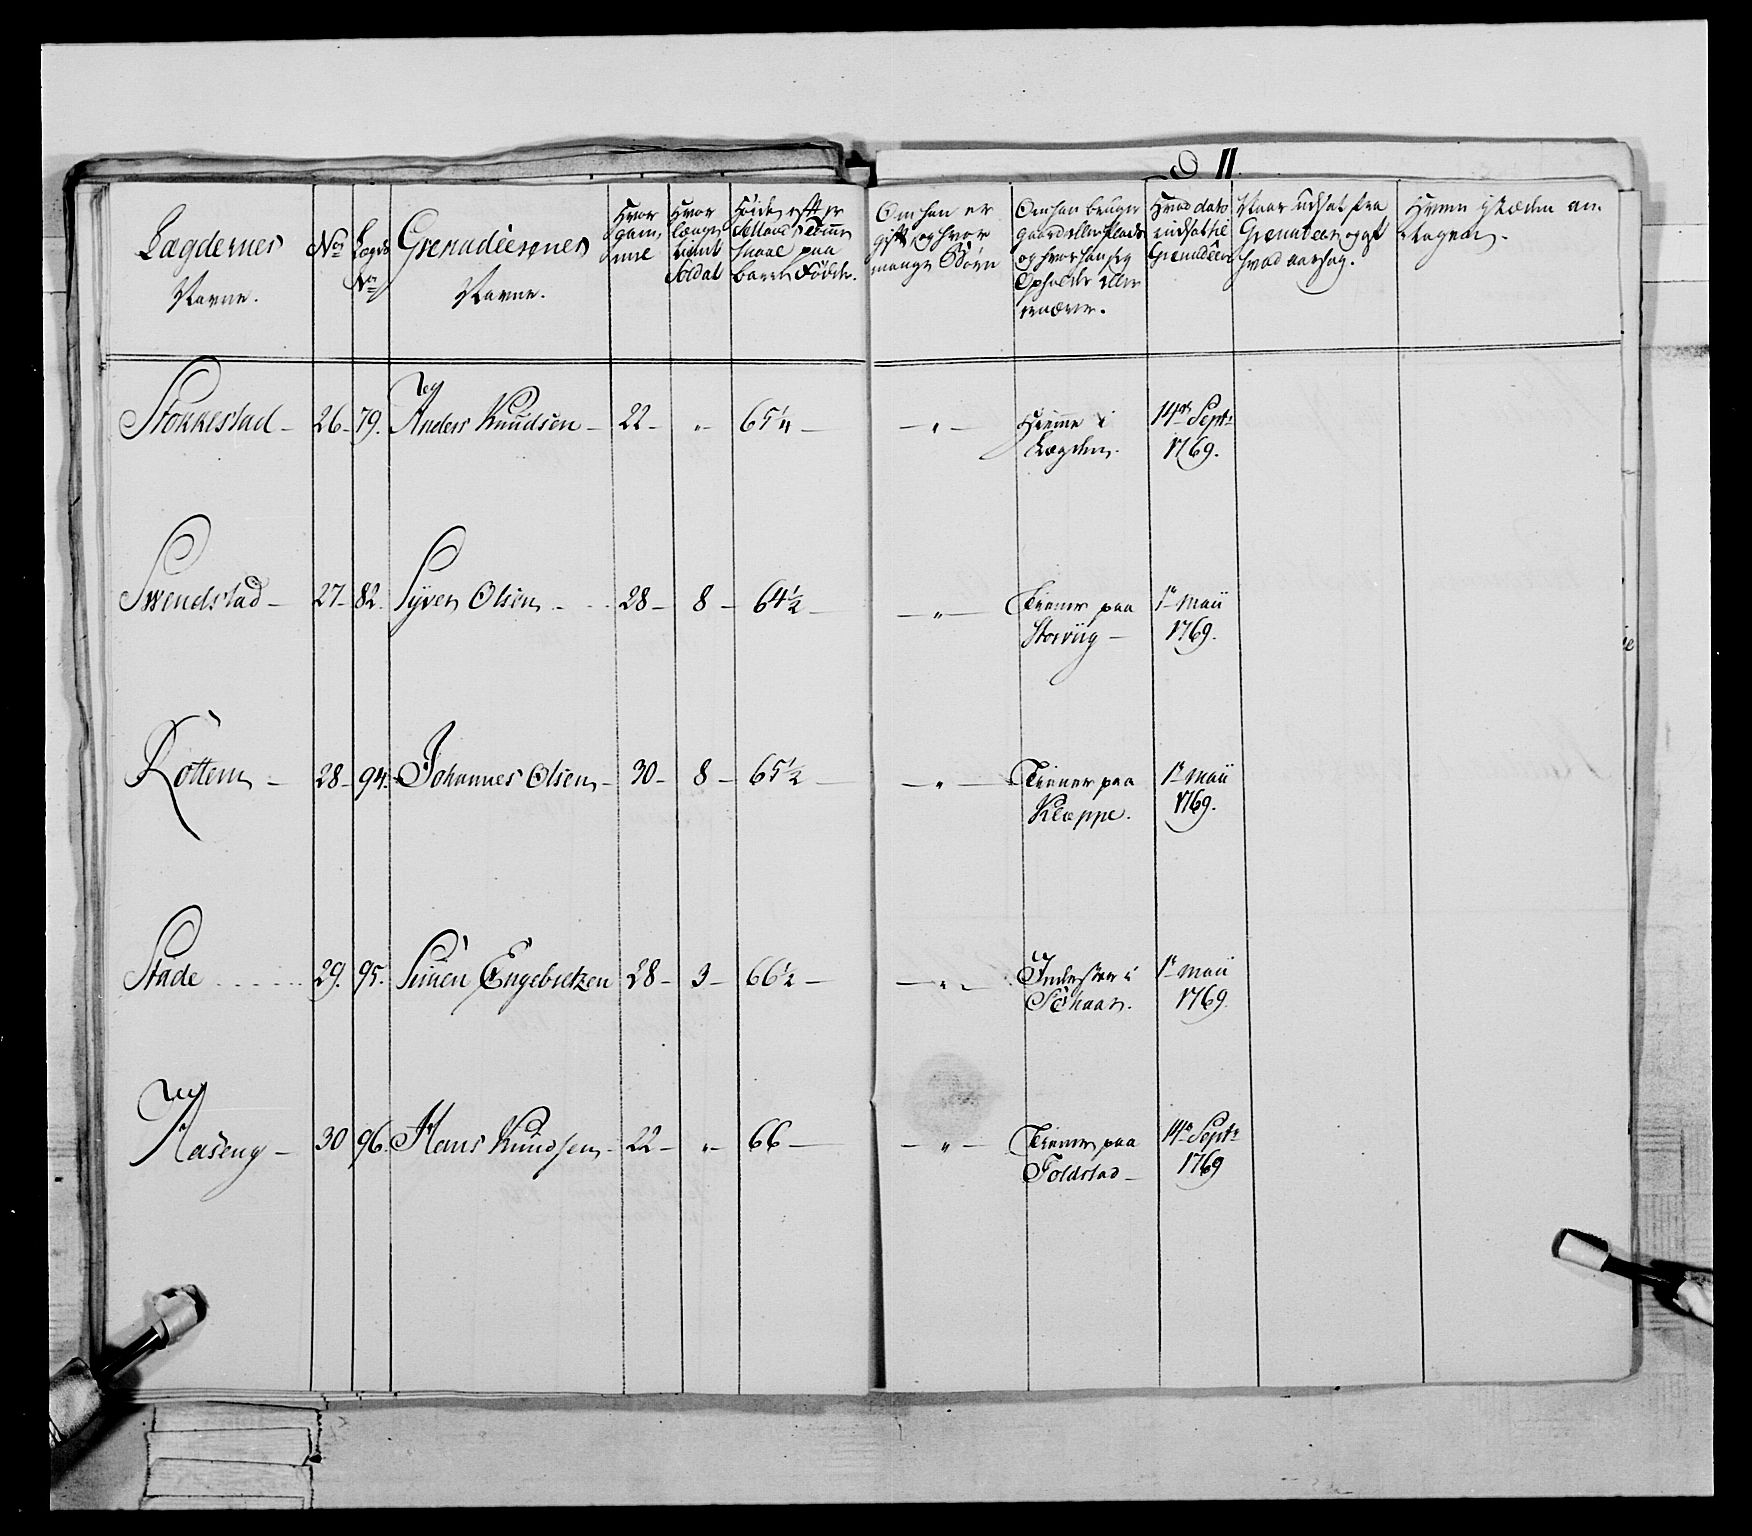 11.
Lægdernes Navne.
No
Lægds No
Grenadeerernes Navne.
Hvor gammel
Hvor længe tient Soldat
Høide efter Sellands Tomme Maal paa bare Fødder.
Om han er gift, og hvor mange Børn
Om han bruger gaard eller Plads og hvor han sig Opholder eller ernærer.
Hvad dato indsat til Grenadeer
Naar udsat fra Grenadeer og af hvad aarsag.
Hvem i stæden an-tagen.
Stokkestad - 26 - 79. Anders Knudsen - 22 - „ - 65¼ - „ - Hiemme i Lægden. 14de Septr 1769.
Svendstad - 27 - 82. Syver Olsen - 28 - 8 - 64½ - „ - Tiener paa Storviig - 1te Maii 1769.
Rottem - 28 - 94. Johannes Olsen - 30 - 8 - 65½ - „ - Tiener paa Kleppe. 1te Maii 1769.
Stade 29. 95. Simen Engebretzen 28 - 3 - 66½ - „ - Inderster i 1te Maii 1769.
Aaseng - 30 96. Hans Knudsen - 22 - „ - 66 - „ - Tiener paa Foldstad - 14de Septr 1769